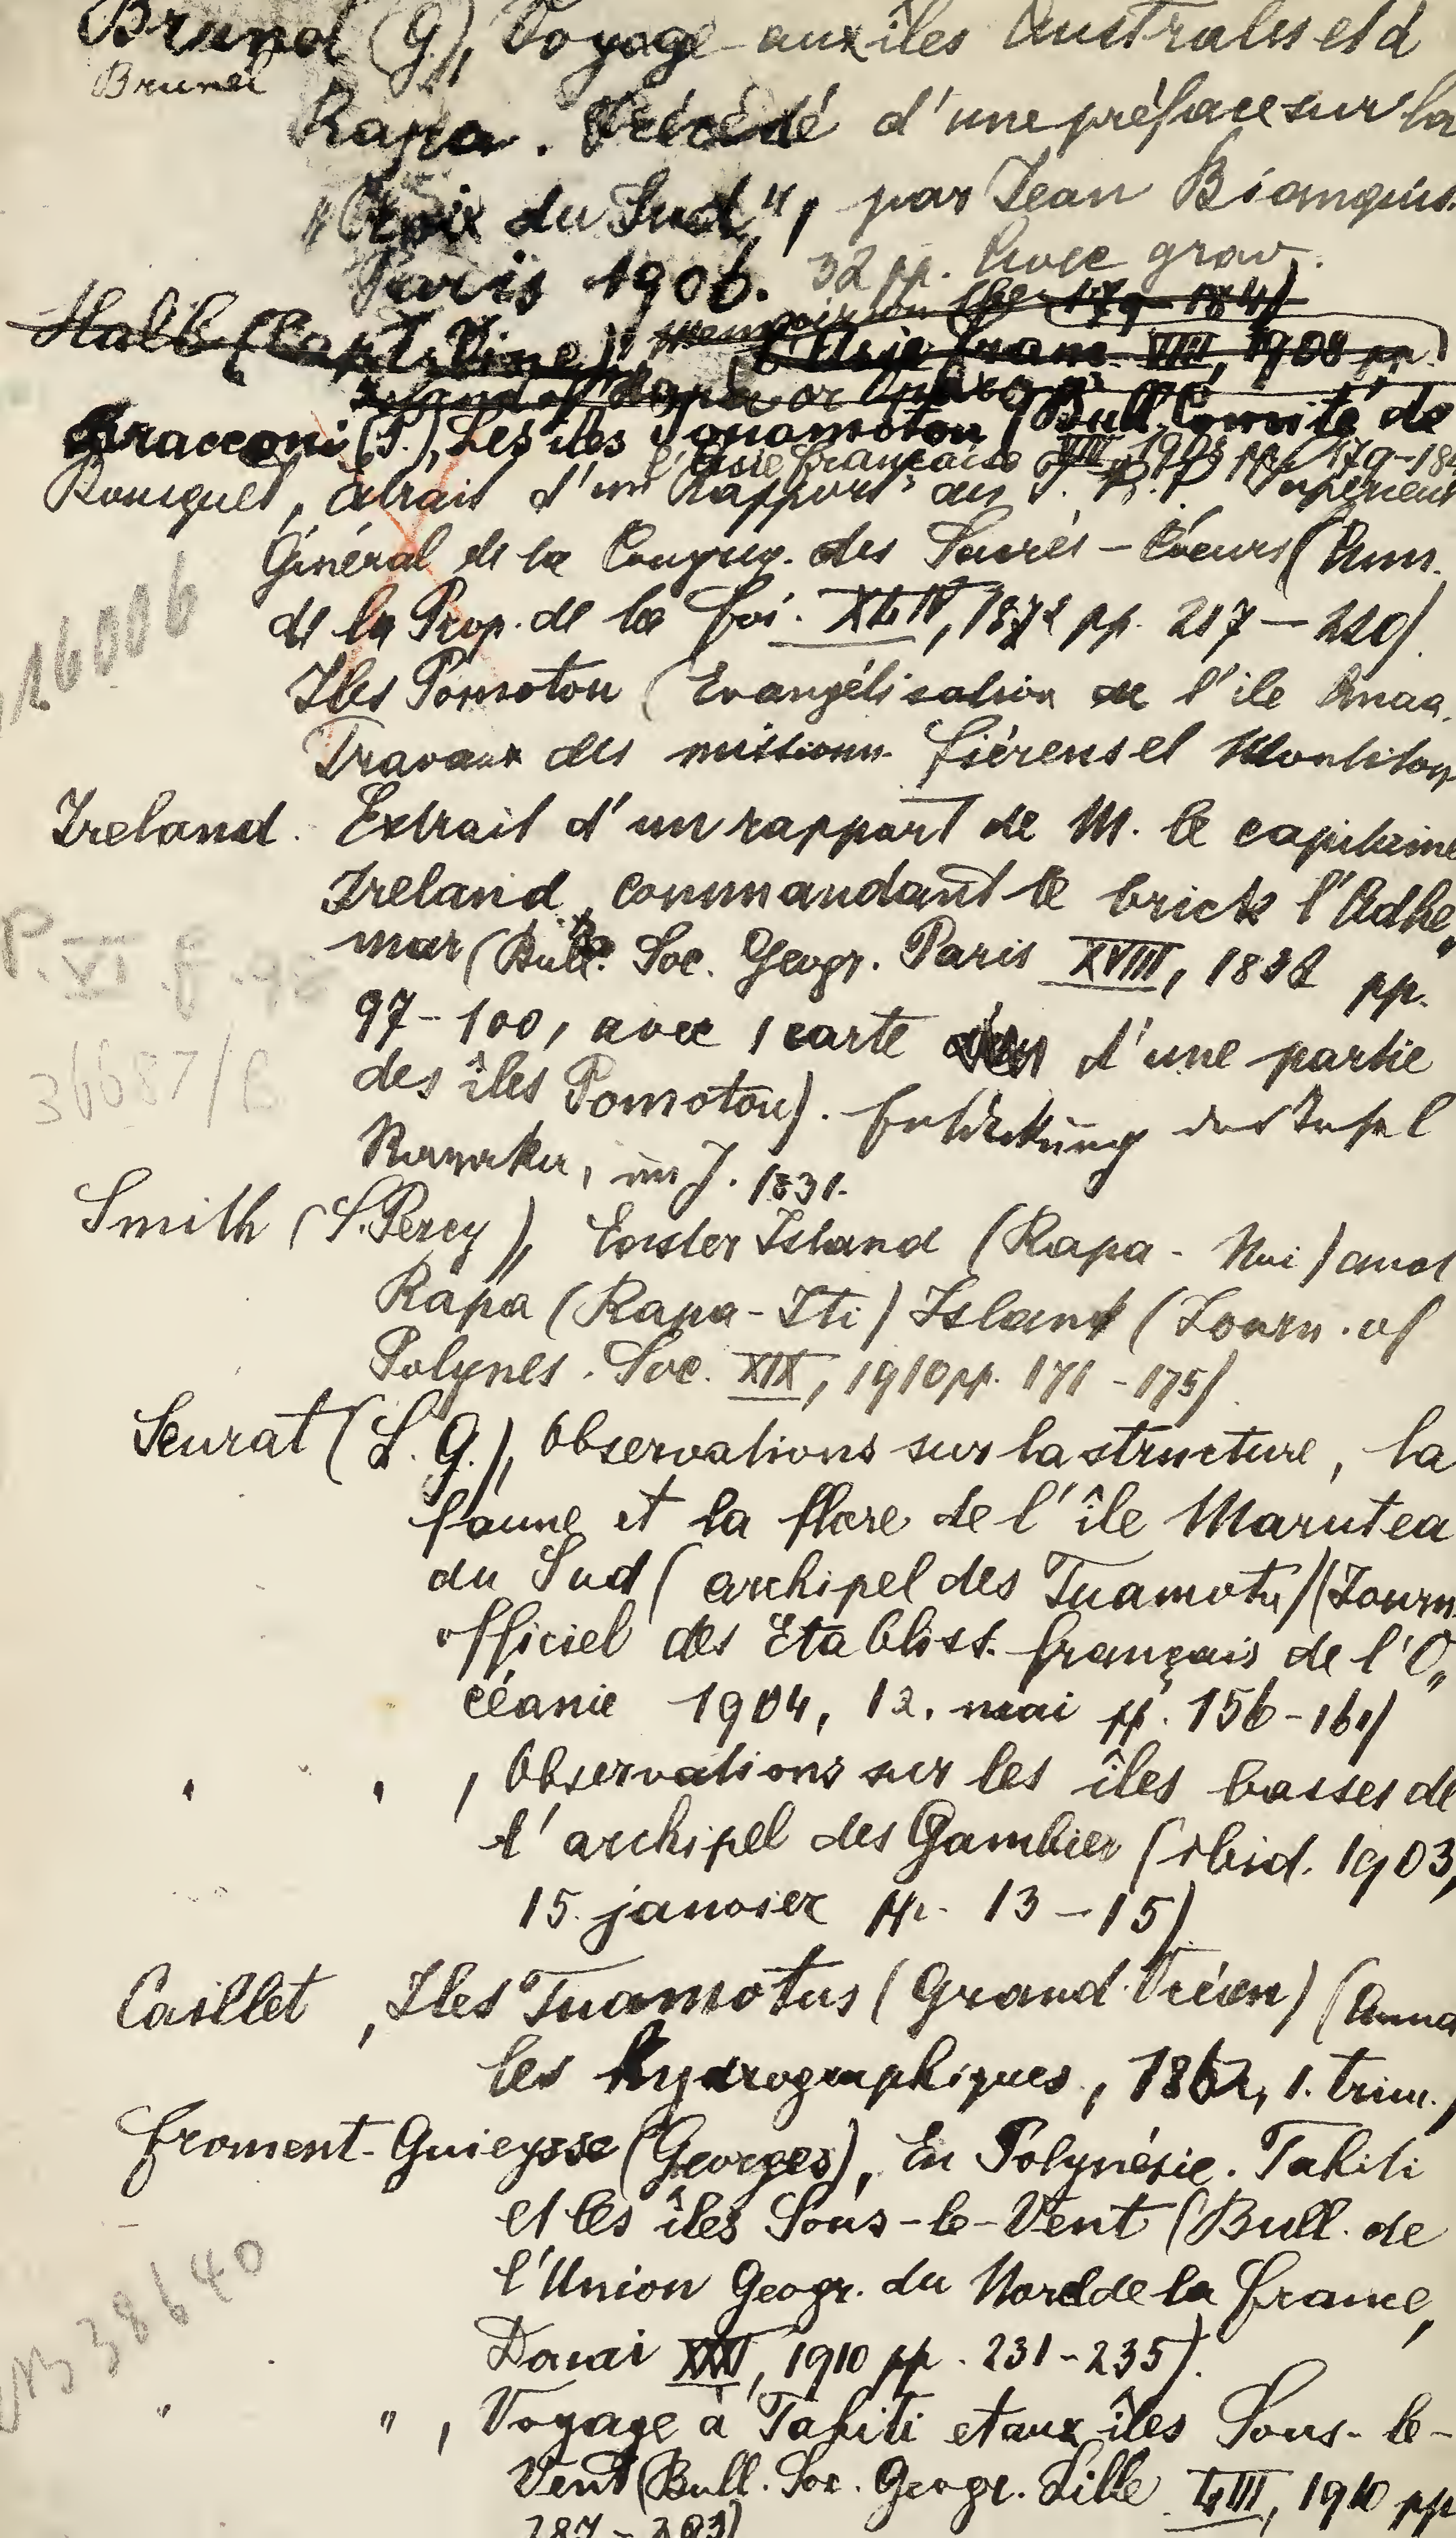 Brunel (G.), Voyage aux îles Australes et à
Brunel
Rapa. Précédé d'une préface sur la
"Croix du Sud", par Jean Bianquis.
Paris 1906. 32 pp. Avec grav.
Hall (Capt. Vine), Memoir on (the 179-184)
l'Asie franç. VIII, 1908 pp.
Island of Rapa or Oparo
Bracconi (P.), Les îles Touamotou (Bull. Comité de
l'Asie française VIII, 1908 pp. 179-184
Rousquet, Extrait d'un Rapport du T. R. P. Supérieur
Général de la Congreg. des Sacrés-Coeurs (Ann.
de la Prop. de la Foi. XLIV, 1872 pp. 217-220).
Iles Pomotou (Evangélisation de l'île Anaa.
Travaux des missionn. Fiérens et Montiton
16006
Ireland. Extrait d'un rapport de M. le capitaine
Ireland, commandant le brick l'Adhe„
mar (Bull. Soc. Geogr. Paris XVIII, 1832 pp.
97-100, avec 1 carte d'une partie
des îles Pomotou). Entdeckung der Insel
im J. 1831.
P. VI f.
36687/B
Smith (S. Percy), Easter Island (Rapa-Nui) and
Rapa (Rapa-Iti) Island (Journ. of
Polynes. Soc. XIX, 1910 pp. 171-175)
Seurat (L. G.), Observations sur la structure, la
faune et la flore de l'île Marutea
du Sud (archipel des Tuamotu) (Journ.
officiel des Etabliss. français de l'O„
céanie 1904, 12. mai pp. 156-161)
" " , Observations sur les îles basses de
l'archipel des Gambier (ibid. 1903,
15. janvier pp. 13-15)
Caillet, Iles Tuamotus (Grand Océan) (Anna
les hydrographiques, 1862, 1. trim.)
Froment-Guieysse (Georges), En Polynésie. Tahiti
et les îles Sous-le-Vent (Bull. de
l'Union Geogr. du Nord de la France,
Douai XXXI, 1910 pp. 231-235).
38640
" " , Voyage à Tahiti et aux îles Sous-le-
Vent (Bull. Soc. Geogr. Lille LIII, 1910 pp
287-293)